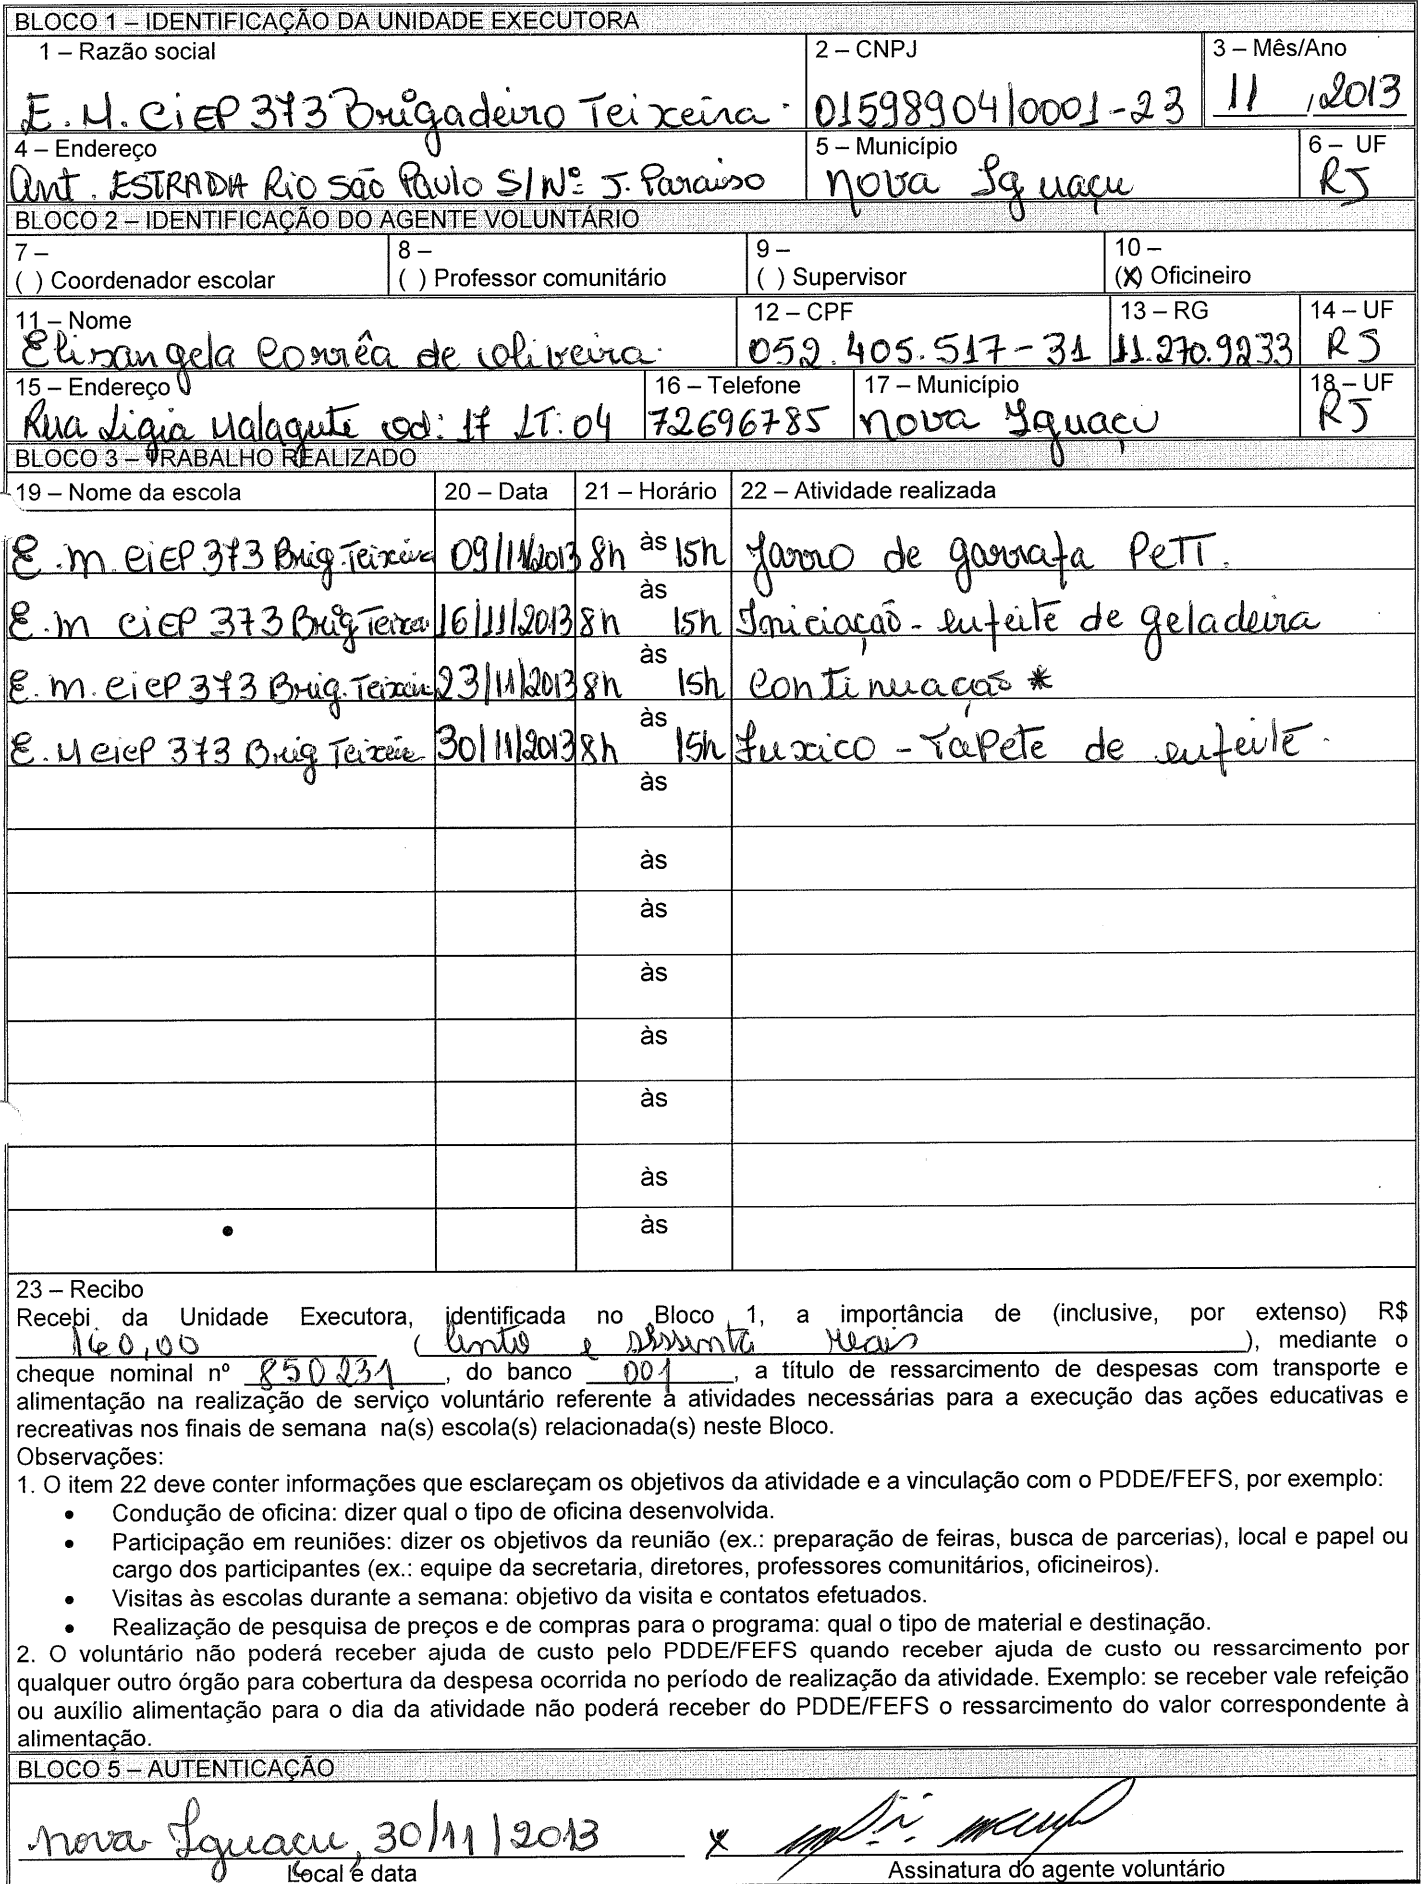 BLOCO 1 – IDENTIFICAÇÃO DA UNIDADE EXECUTORA
1 – Razão social 2 – CNPJ 3 – Mês/Ano
E. M. CiEP 373 Brigadeiro Teixeira. 01598904/0001-23 11 / 2013
4 – Endereço 5 – Município 6 – UF
Ant. ESTRADA Rio São Paulo S/Nº J. Paraiso Nova Iguaçu RJ
BLOCO 2 – IDENTIFICAÇÃO DO AGENTE VOLUNTÁRIO
7 – 8 – 9 – 10 –
( ) Coordenador escolar ( ) Professor comunitário ( ) Supervisor (X) Oficineiro
11 – Nome 12 – CPF 13 – RG 14 – UF
Elisangela Corrêa de Oliveira. 052.405.517-31 11.270.9233 RJ
15 – Endereço 16 – Telefone 17 – Município 18 – UF
Rua Ligia Malagute Qd: 17 LT: 04 72696785 Nova Iguaçu RJ
BLOCO 3 – TRABALHO REALIZADO
19 – Nome da escola 20 – Data 21 – Horário 22 – Atividade realizada
E.M. CiEP 373 Brig. Teixeira 09/11/2013 8h às 15h Jarro de garrafa PeTT.
E.M CiEP 373 Brig Teixei 16/11/2013 8h às 15h Iniciação - enfeite de geladeira
E.M. CiEP 373 Brig. Teixeir 23/11/2013 8h às 15h Continuação *
E.M CiEP 373 Brig Teixeir 30/11/2013 8h às 15h Fuxico - Tapete de enfeite.
às
às
às
às
às
às
às
às
23 – Recibo
Recebi da Unidade Executora, identificada no Bloco 1, a importância de (inclusive, por extenso) R$
160,00 ( cento e sessenta reais ), mediante o
cheque nominal nº 850231, do banco 001, a título de ressarcimento de despesas com transporte e
alimentação na realização de serviço voluntário referente à atividades necessárias para a execução das ações educativas e
recreativas nos finais de semana na(s) escola(s) relacionada(s) neste Bloco.
Observações:
1. O item 22 deve conter informações que esclareçam os objetivos da atividade e a vinculação com o PDDE/FEFS, por exemplo:
• Condução de oficina: dizer qual o tipo de oficina desenvolvida.
• Participação em reuniões: dizer os objetivos da reunião (ex.: preparação de feiras, busca de parcerias), local e papel ou
cargo dos participantes (ex.: equipe da secretaria, diretores, professores comunitários, oficineiros).
• Visitas às escolas durante a semana: objetivo da visita e contatos efetuados.
• Realização de pesquisa de preços e de compras para o programa: qual o tipo de material e destinação.
2. O voluntário não poderá receber ajuda de custo pelo PDDE/FEFS quando receber ajuda de custo ou ressarcimento por
qualquer outro órgão para cobertura da despesa ocorrida no período de realização da atividade. Exemplo: se receber vale refeição
ou auxílio alimentação para o dia da atividade não poderá receber do PDDE/FEFS o ressarcimento do valor correspondente à
alimentação.
BLOCO 5 – AUTENTICAÇÃO
Nova Iguaçu, 30/11/2013 x
Local e data Assinatura do agente voluntário